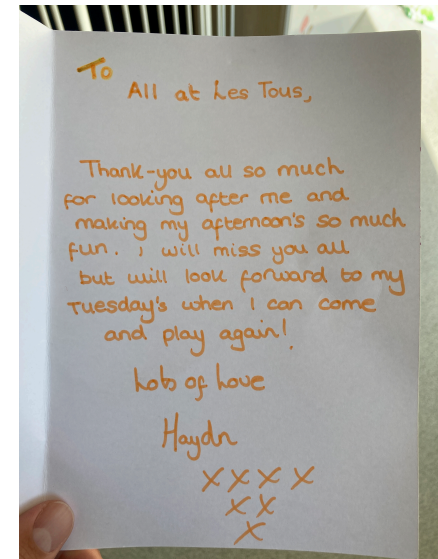 To
All at Les Tous,
Thank-you all so much
for looking after me and
making my afternoon's so much
fun. i will miss you all
but will look forward to my
Tuesday's when I can come
and play again!
Lots of Love
Haydn
x x x x
x x
x